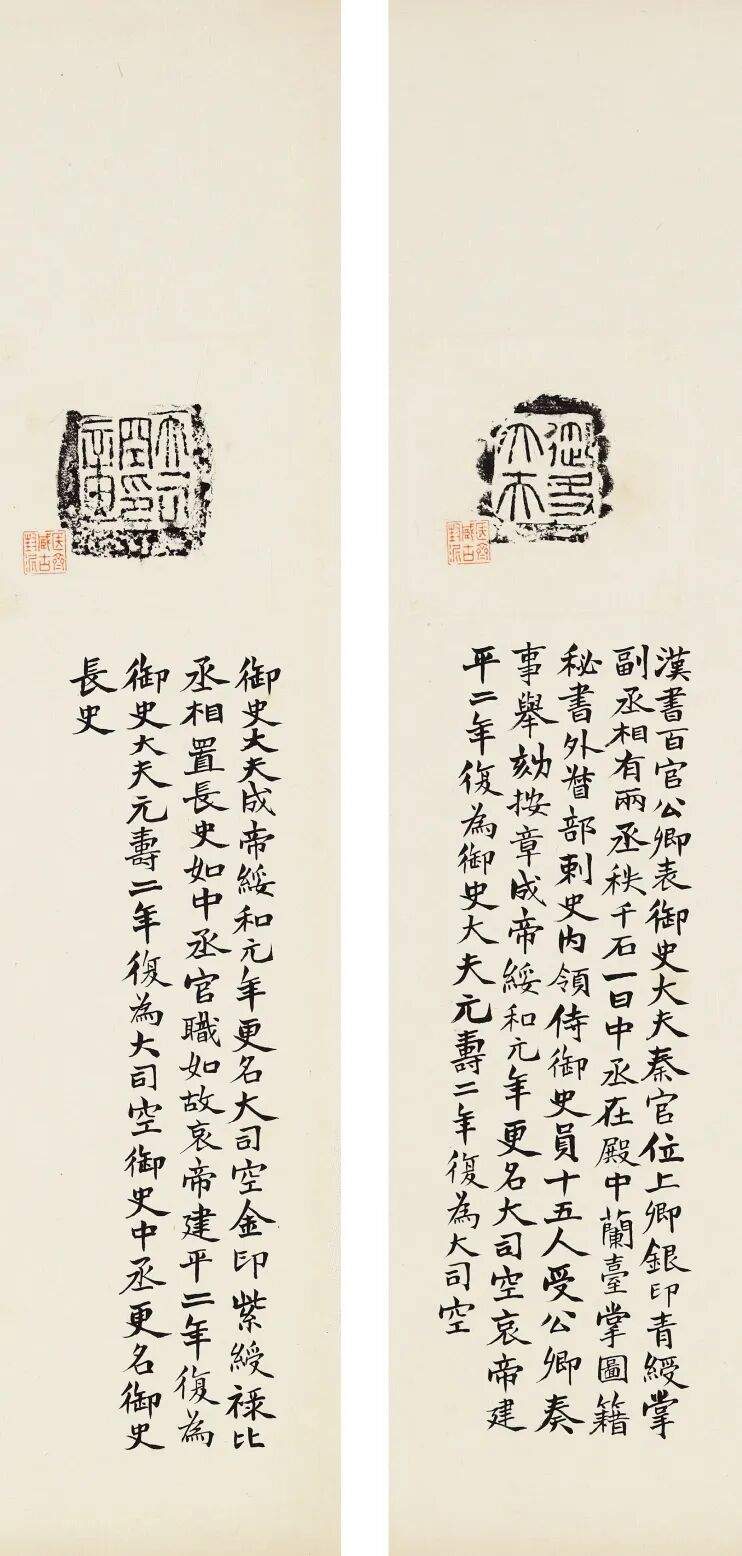 御史
大夫
簠齋
藏古
封泥
漢書百官公卿表御史大夫秦官位上卿銀印青綬掌
副丞相有兩丞秩千石一曰中丞在殿中蘭臺掌圖籍
秘書外督部刺史内領侍御史員十五人受公卿奏
事舉劾按章成帝綏和元年更名大司空哀帝建
平二年復為御史大夫元壽二年復為大司空
大司
空印
章
簠齋
藏古
封泥
御史大夫成帝綏和元年更名大司空金印紫綬祿比
丞相置長史如中丞官職如故哀帝建平二年復為
御史大夫元壽二年復為大司空御史中丞更名御史
長史